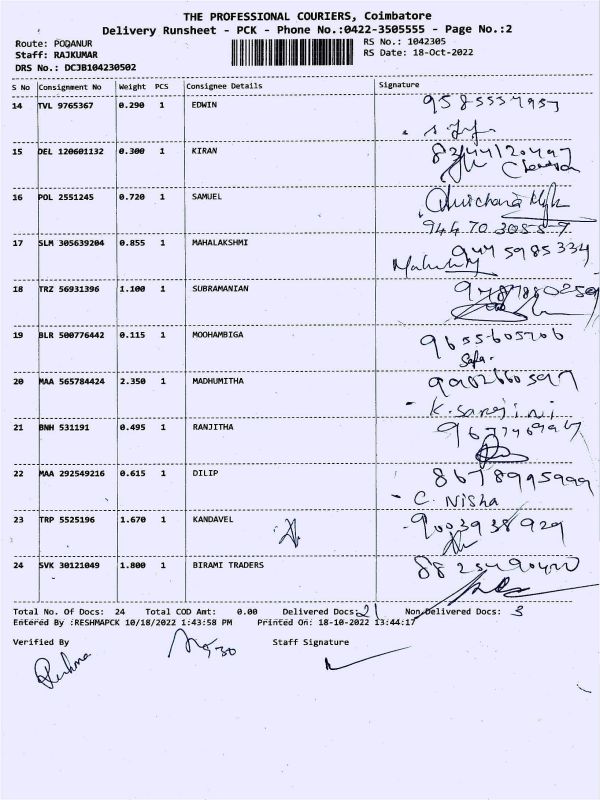 THE PROFESSIONAL COURIERS, Coimbatore
Delivery Runsheet - PCK - Phone No.:0422-3505555 - Page No.:2
Route: PODANUR
RS No.: 1042305
Staff: RAJKUMAR
RS Date: 18-Oct-2022
DRS No.: DCJB104230502
S No Consignment No Weight PCS Consignee Details Signature
14 TVL 9765367 0.290 1 EDWIN
15 DEL 120601132 0.300 1 KIRAN
16 POL 2551245 0.720 1 SAMUEL
17 SLM 305639204 0.855 1 MAHALAKSHMI 9445985334
18 TRZ 56931396 1.100 1 SUBRAMANIAN
19 BLR 500776442 0.115 1 MOOHAMBIGA 9655605706
20 MAA 565784424 2.350 1 MADHUMITHA
K. Sarojini
21 BNH 531191 0.495 1 RANJITHA
22 MAA 292549216 0.615 1 DILIP 8678995999
C. Nisha
23 TRP 5525196 1.670 1 KANDAVEL 9003938929
24 SVK 30121049 1.800 1 BIRAMI TRADERS
Total No. Of Docs: 24 Total COD Amt: 0.00 Delivered Docs: 21 Non-Delivered Docs: 3
Entered By :RESHMAPCK 10/18/2022 1:43:58 PM Printed On: 18-10-2022 13:44:17
Verified By Staff Signature